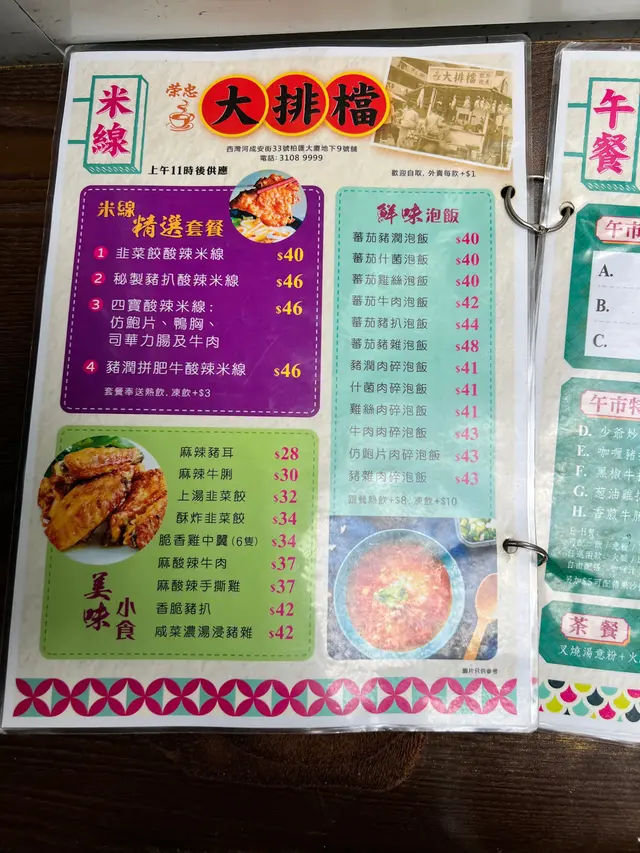 米線
榮忠
大排檔
大排檔
西灣河成安街33號柏匯大廈地下9號舖
電話: 3108 9999
上午11時後供應
歡迎自取, 外賣每款+$1
米線
精選套餐
1 韭菜餃酸辣米線 $40
2 秘製豬扒酸辣米線 $46
3 四寶酸辣米線: $46
仿鮑片、鴨胸、
司華力腸及牛肉
4 豬潤拼肥牛酸辣米線 $46
套餐奉送熱飲, 凍飲+$3
鮮味泡飯
蕃茄豬潤泡飯 $40
蕃茄什菌泡飯 $40
蕃茄雞絲泡飯 $40
蕃茄牛肉泡飯 $42
蕃茄豬扒泡飯 $44
蕃茄豬雜泡飯 $48
豬潤肉碎泡飯 $41
什菌肉碎泡飯 $41
雞絲肉碎泡飯 $41
牛肉肉碎泡飯 $43
仿鮑片肉碎泡飯 $43
豬雜肉碎泡飯 $43
跟餐熱飲+$8, 凍飲+$10
麻辣豬耳 $28
麻辣牛脷 $30
上湯韭菜餃 $32
酥炸韭菜餃 $34
脆香雞中翼 (6隻) $34
麻酸辣牛肉 $37
麻酸辣手撕雞 $37
香脆豬扒 $42
咸菜濃湯浸豬雜 $42
美味
小食
圖片只供參考
午餐
午市
A.
B.
C.
午市特
D. 少爺炒
E. 咖喱豬
F. 黑椒牛
G. 蔥油雞
H. 香煎牛
茶餐
叉燒湯意粉+火